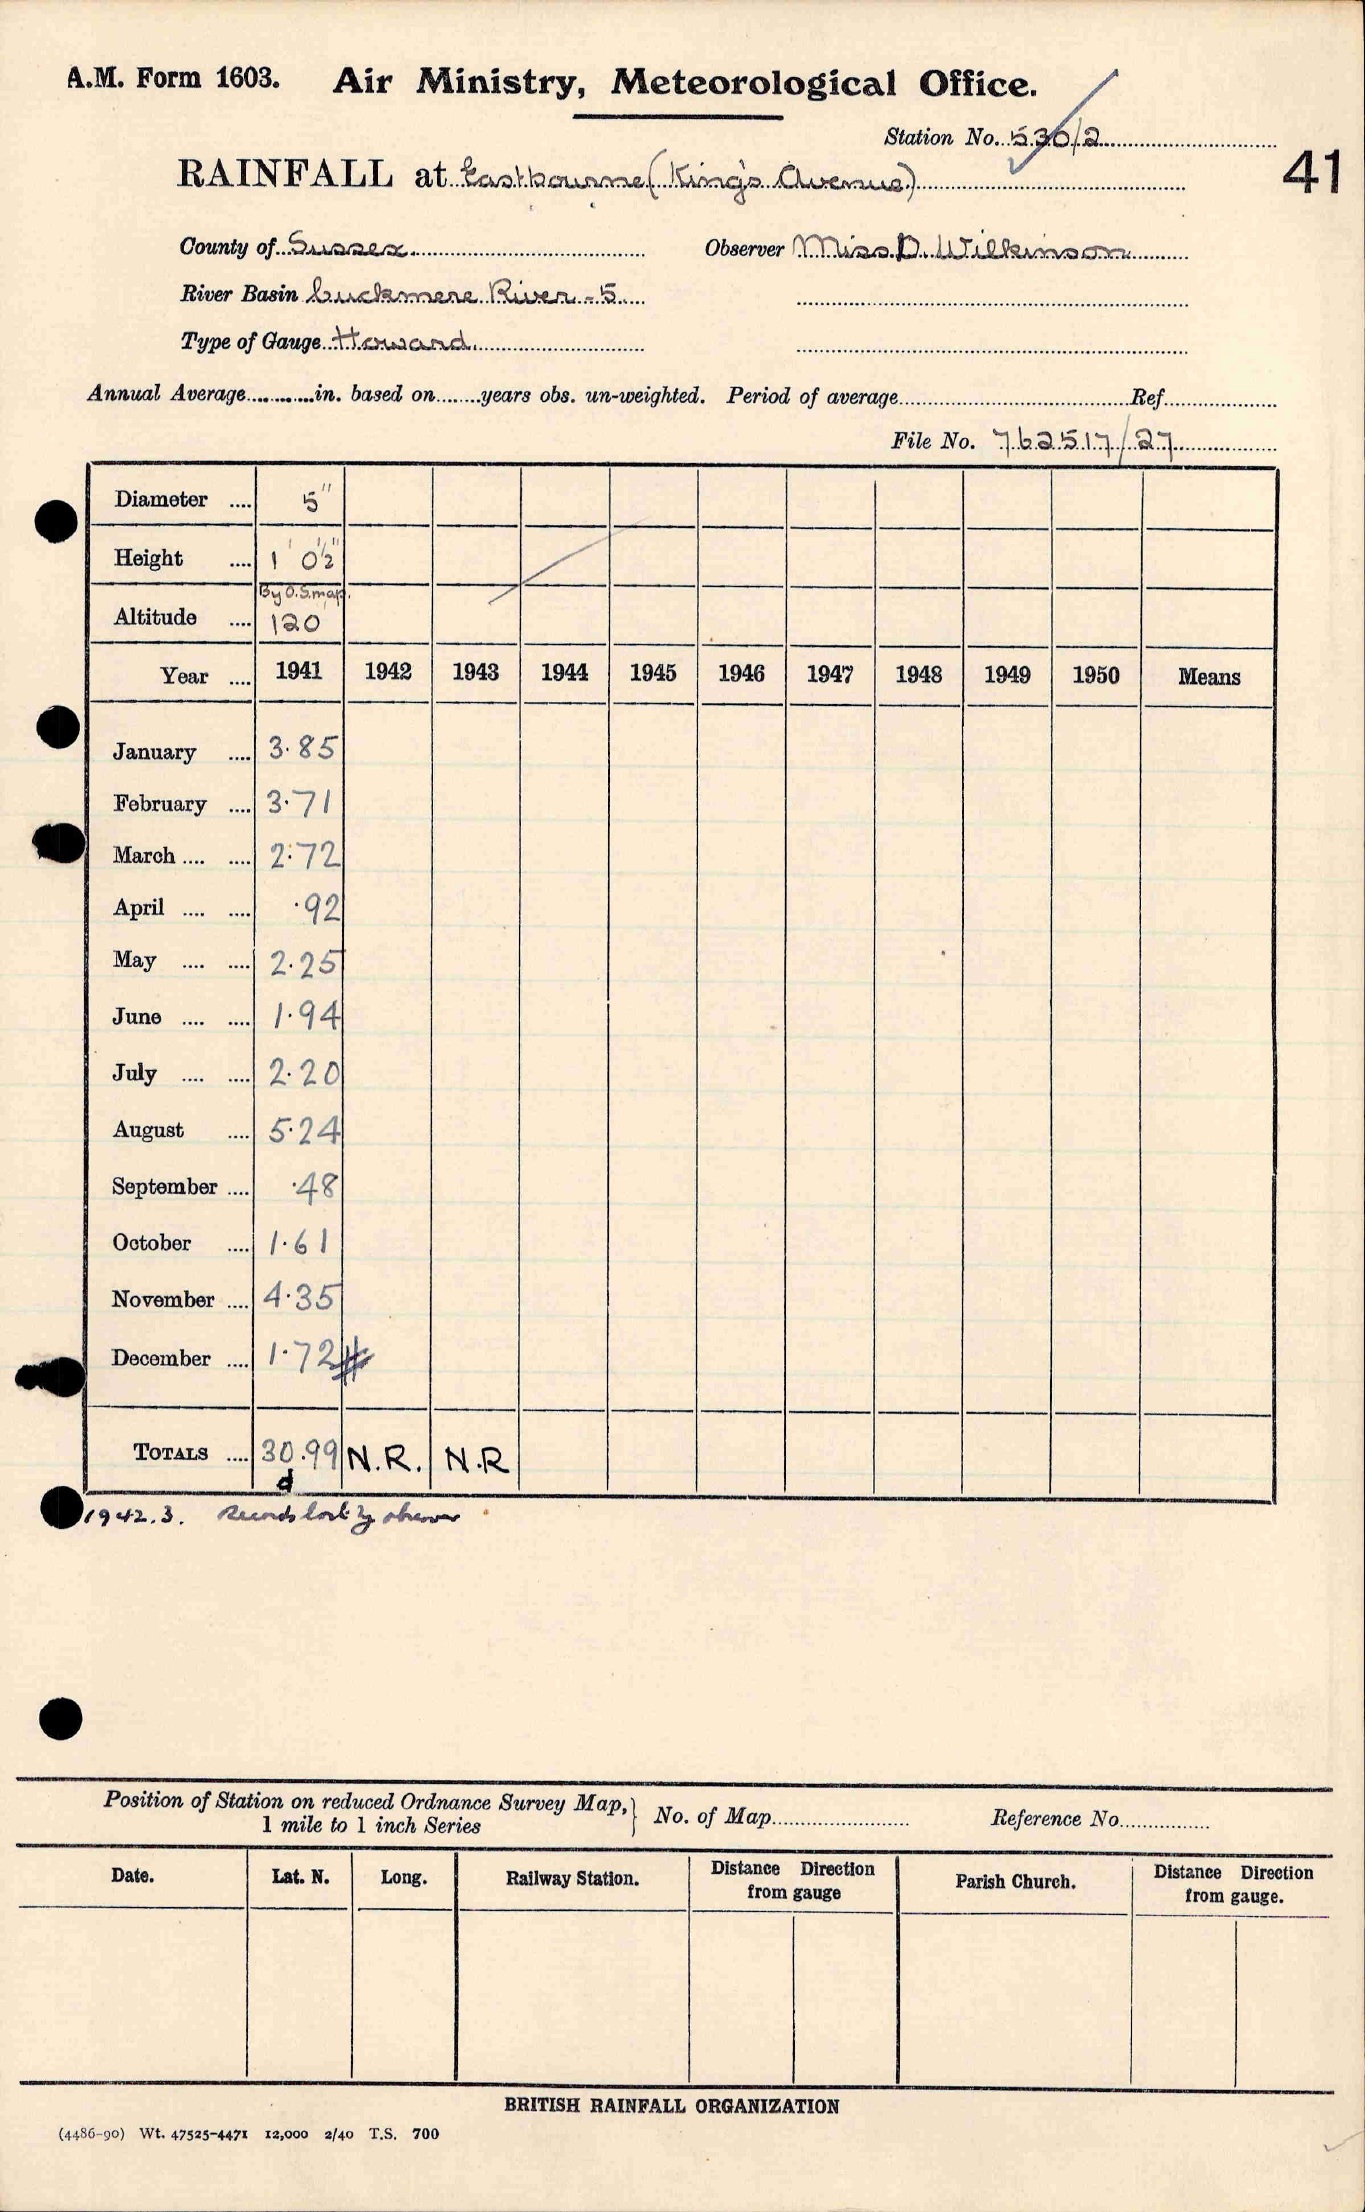 A.M. Form 1603. Air Ministry, Meteorological Office.
Station No. 530/2
41
RAINFALL at Eastbourne (King's Avenue)
County of Sussex Observer Miss D. Wilkinson
River Basin Cuckmere River - 5
Type of Gauge Howard
Annual Average............in. based on........years obs. un-weighted. Period of average........................................Ref....................
File No. 762517/27
Diameter .... 5"
Height .... 1' 0½"
By O.S. map.
Altitude .... 120
Year .... 1941 1942 1943 1944 1945 1946 1947 1948 1949 1950 Means
January .... 3.85
February .... 3.71
March .... .... 2.72
April .... .... .92
May .... .... 2.25
June .... .... 1.94
July .... .... 2.20
August .... 5.24
September .... .48
October .... 1.61
November .... 4.35
December .... 1.72 #
TOTALS .... 30.99 N.R. N.R
d
1942.3. Records lost by observer
Position of Station on reduced Ordnance Survey Map,} No. of Map........................ Reference No................
1 mile to 1 inch Series
Date. Lat. N. Long. Railway Station. Distance Direction from gauge Parish Church. Distance Direction from gauge.
BRITISH RAINFALL ORGANIZATION
(4486-90) Wt. 47525-4471 12,000 2/40 T.S. 700